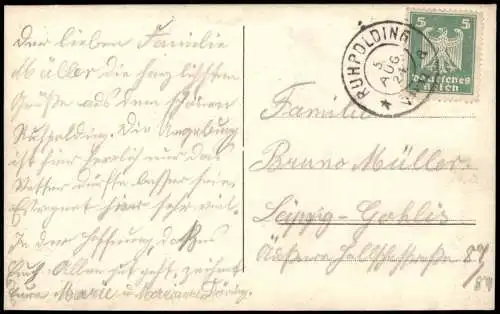 Der lieben Familie
Müller die herzlichsten
Grüße aus dem schönen
Ruhpolding. Die Umgebung
ist hier herrlich nur das
Wetter dürfte besser sein
Es regnet hier sehr viel.
In der Hoffnung, daß es
Euch Allen gut geht, zeichnet
Eure Marie u. Marianne
RUHPOLDING
5 AUG
5 5
Deutsches
Reich
Familie
Bruno Müller.
Leipzig-Gohlis
Äußere Hallischestraße